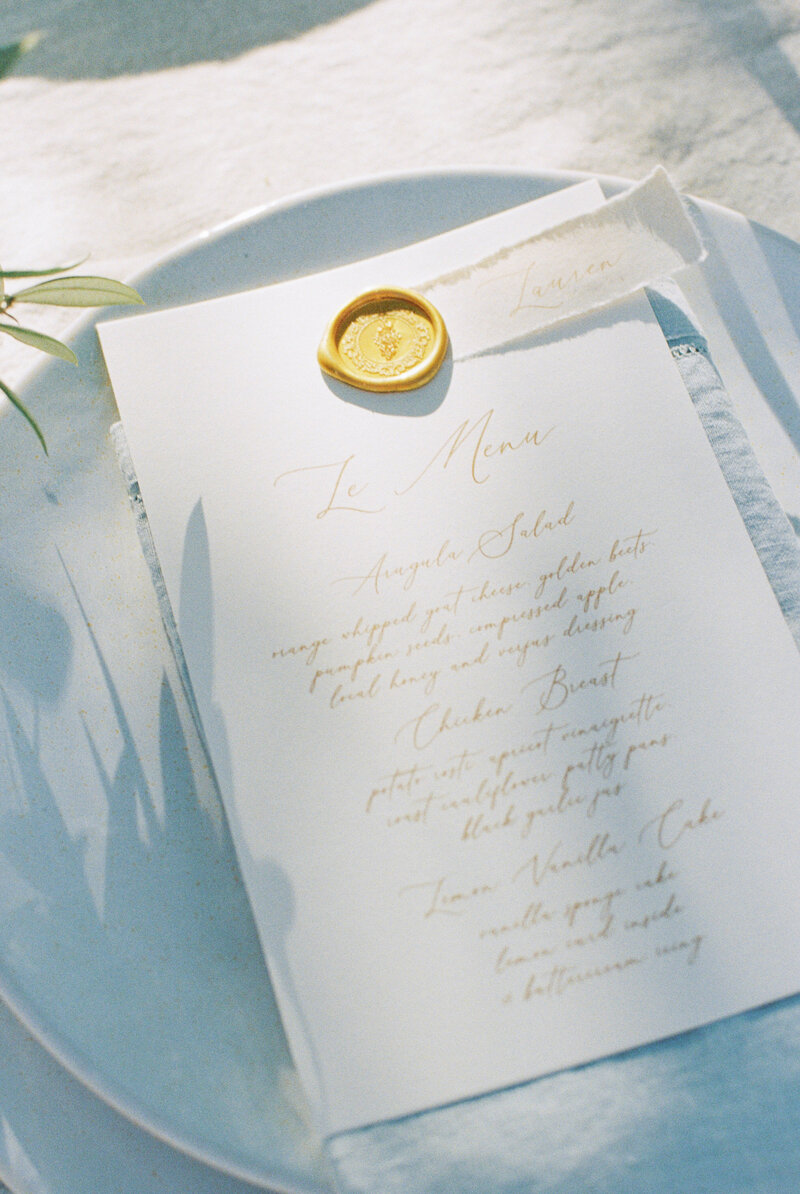 Lauren
Le Menu
Arugula Salad
orange whipped goat cheese, golden beets,
pumpkin seeds, compressed apple,
local honey and verjus dressing
Chicken Breast
potato rosti, apricot vinaigrette
roast cauliflower, patty pans
black garlic jus
Lemon Vanilla Cake
vanilla sponge cake
lemon curd inside
& buttercream icing